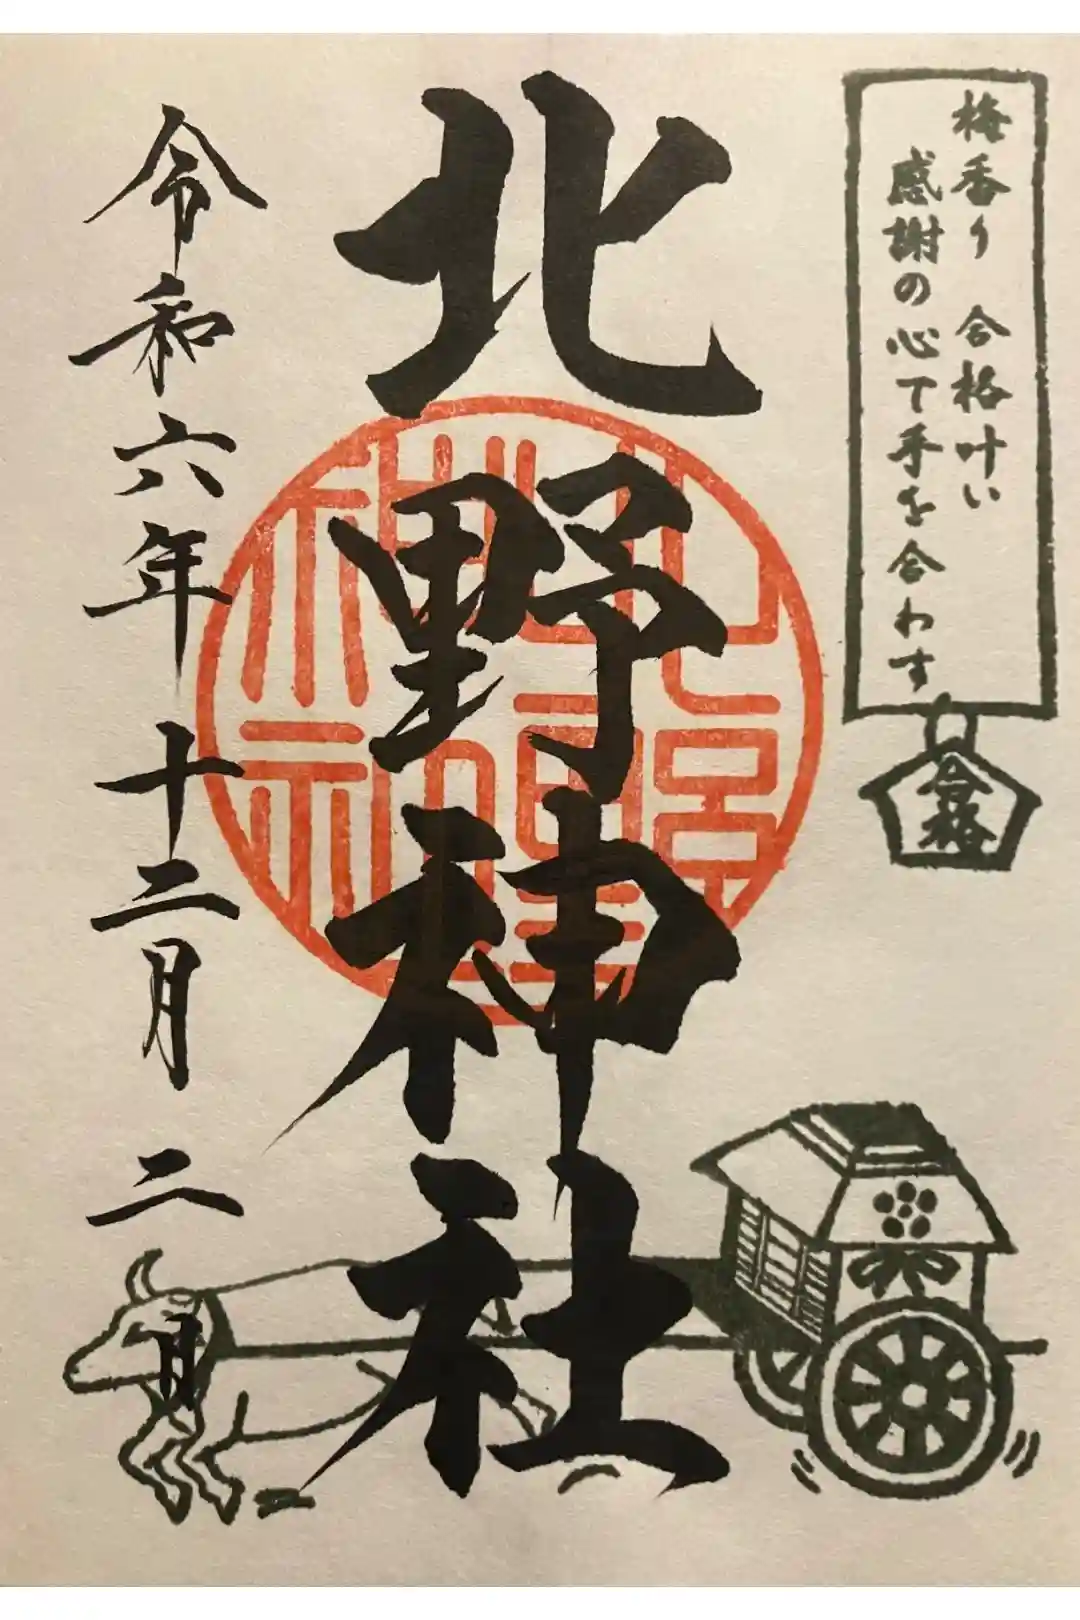 梅香り 合格叶い
感謝の心で手を合わす
合格
北野神社
令和六年十二月二日